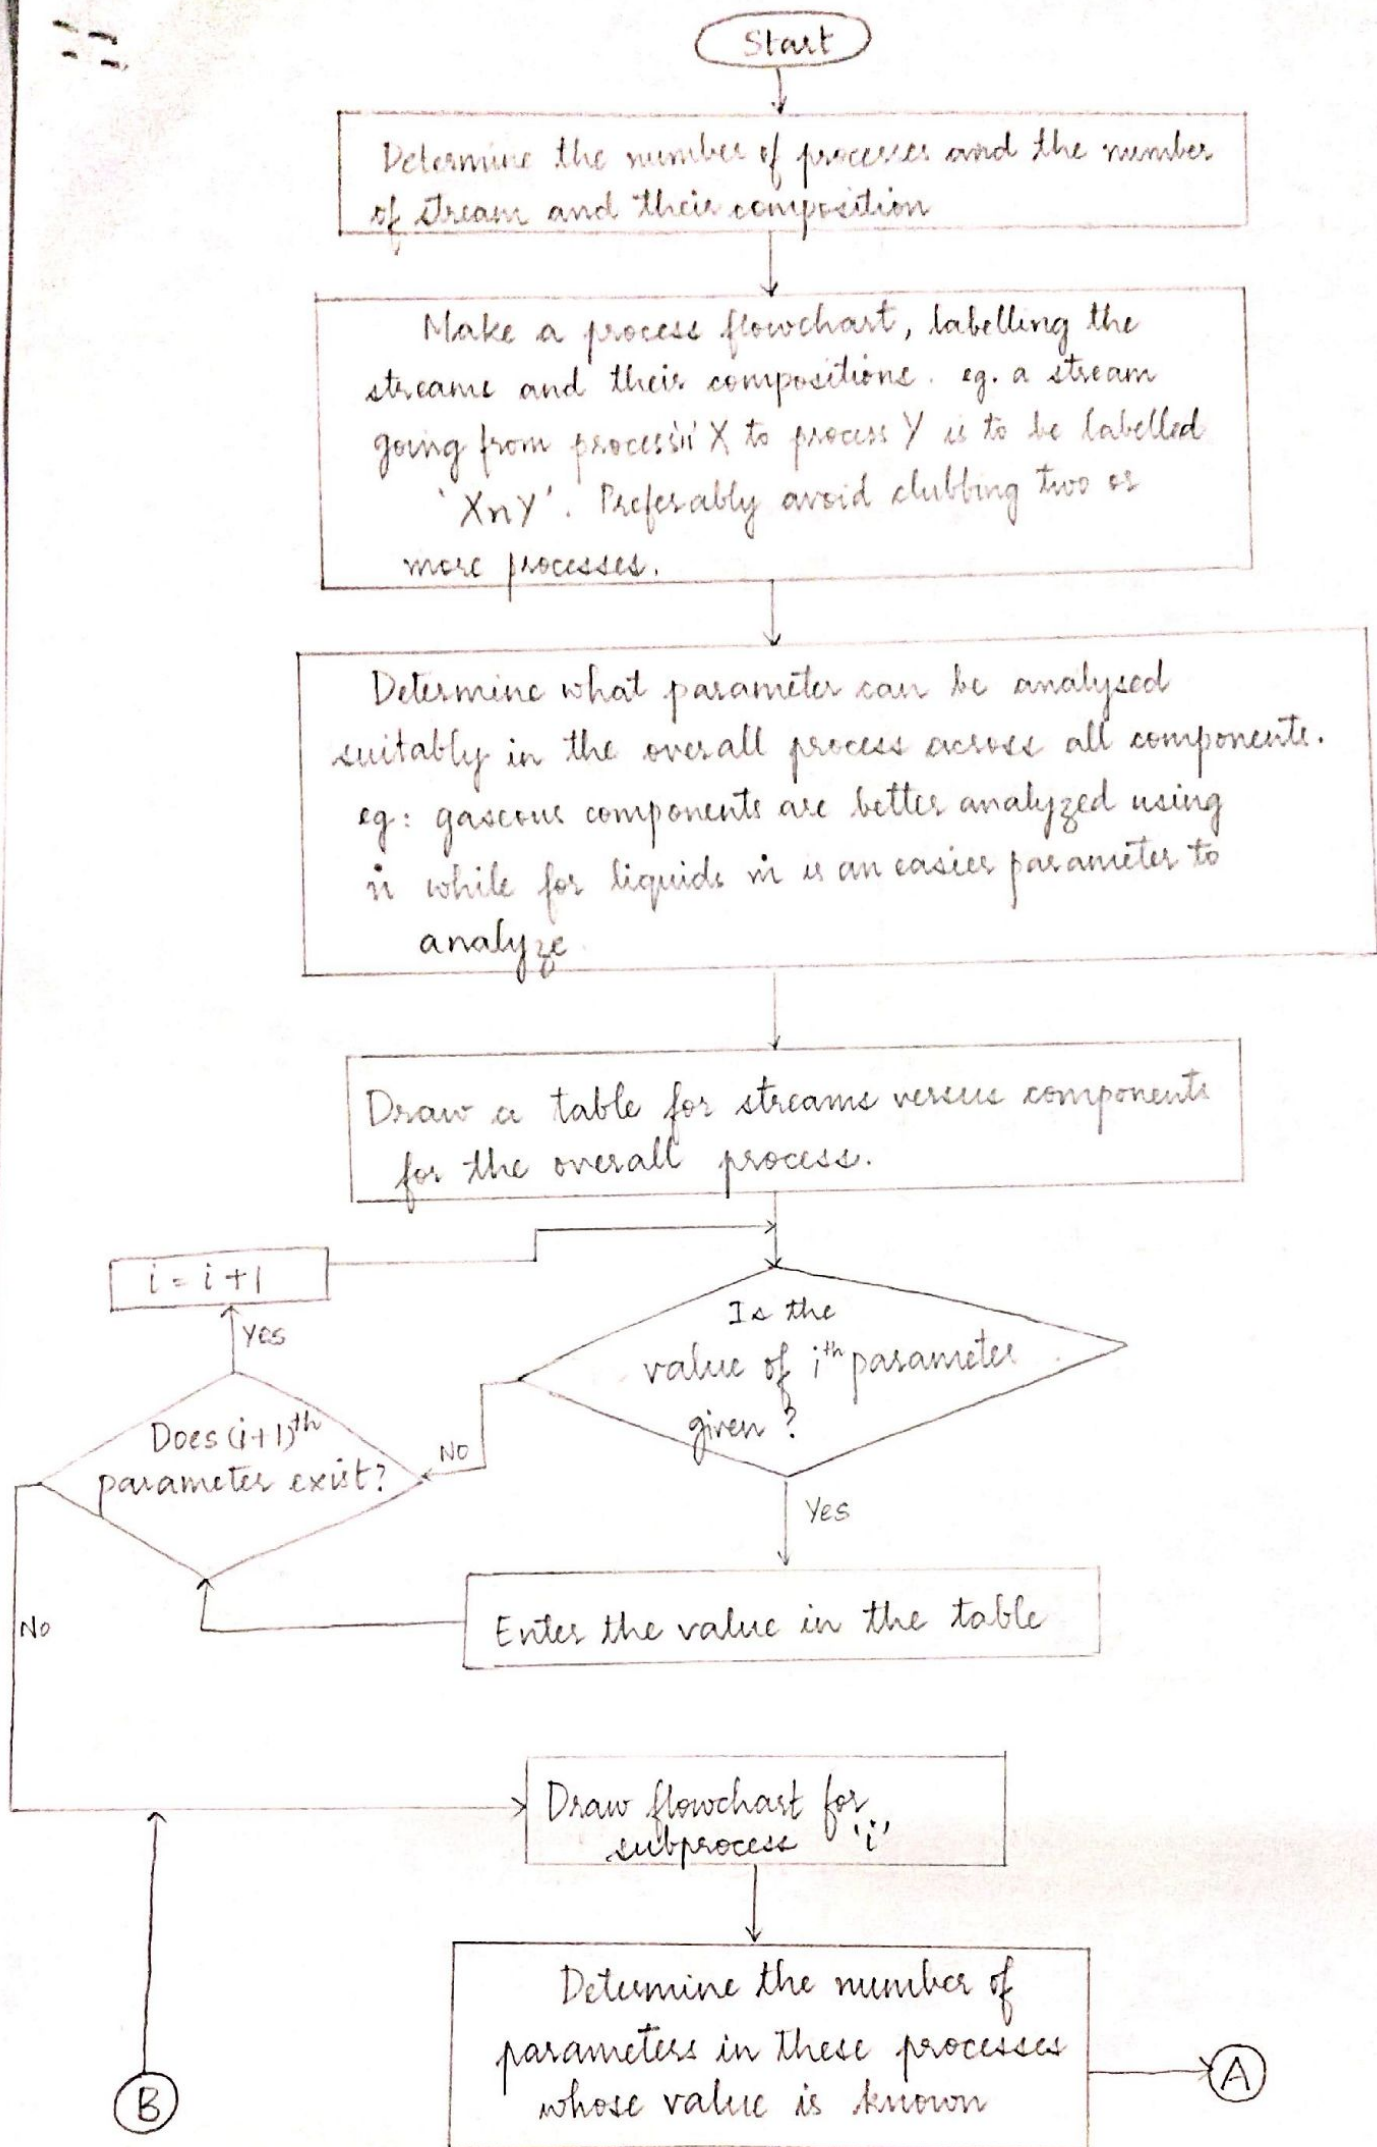 Start
Determine the number of processes and the number
of stream and their composition
Make a process flowchart, labelling the
streams and their compositions. eg. a stream
going from process X to process Y is to be labelled
'XnY'. Preferably avoid clubbing two or
more processes.
Determine what parameter can be analysed
suitably in the overall process across all components.
eg: gaseous components are better analyzed using
ṅ while for liquids ṁ is an easier parameter to
analyze.
Draw a table for streams versus components
for the overall process.
i = i +1
Yes
Is the
value of iᵗʰ parameter
given ?
Does (i+1)ᵗʰ
parameter exist?
NO
Yes
No
Enter the value in the table
Draw flowchart for
subprocess 'i'
Determine the number of
parameters in these processes
whose value is known
A
B